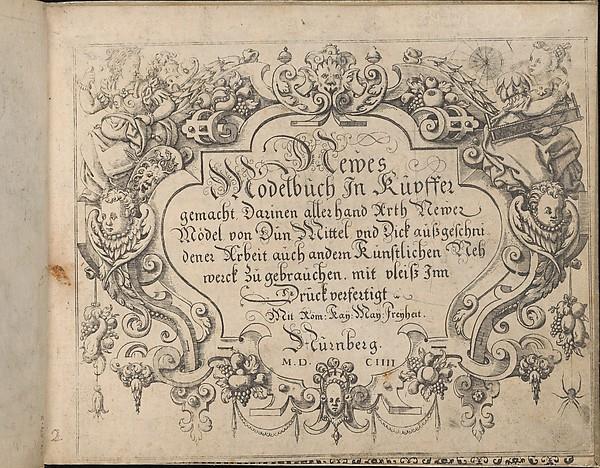 Newes
Modelbuch In Kupffer
gemacht Darinen allerhand Arth Newer
Model von Dün Mittel vnd Dick außgeschni
dener Arbeit auch andern Künstlichen Neh
werck zu gebrauchen. mit vleiß Inn
Druck verfertigt
Mit Röm: Kay: May: freyheit.
Nürnberg.
M.D. CIIII
2